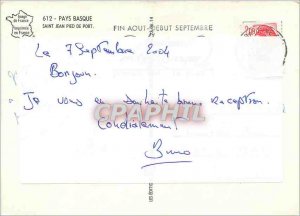 612 - PAYS BASQUE
SAINT JEAN PIED DE PORT.
FIN AOUT-DEBUT SEPTEMBRE
Le 7 Septembre 2004
Bonjour.
Je vous en souhaite bonne réception.
Cordialement
Bruno
CPAPHIL